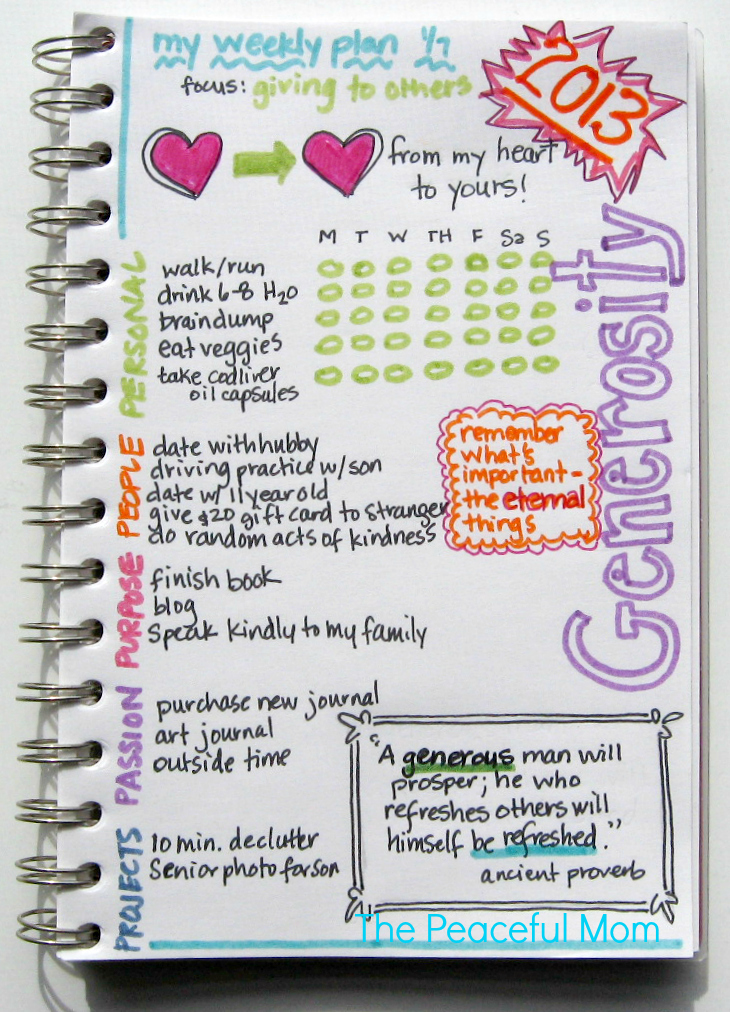 my weekly plan 1/7
focus: giving to others
2013
from my heart
to yours!
Generosity
M T W TH F Sa S
PERSONAL
walk/run
drink 6-8 H2O
braindump
eat veggies
take codliver
oil capsules
PEOPLE
date with hubby
driving practice w/son
date w/ 11 year old
give $20 gift card to stranger
do random acts of kindness
remember
what's
important-
the eternal
things
PURPOSE
finish book
blog
speak kindly to my family
PASSION
purchase new journal
art journal
outside time
PROJECTS
10 min. declutter
Senior photo for son
"A generous man will
prosper; he who
refreshes others will
himself be refreshed."
ancient proverb
The Peaceful Mom